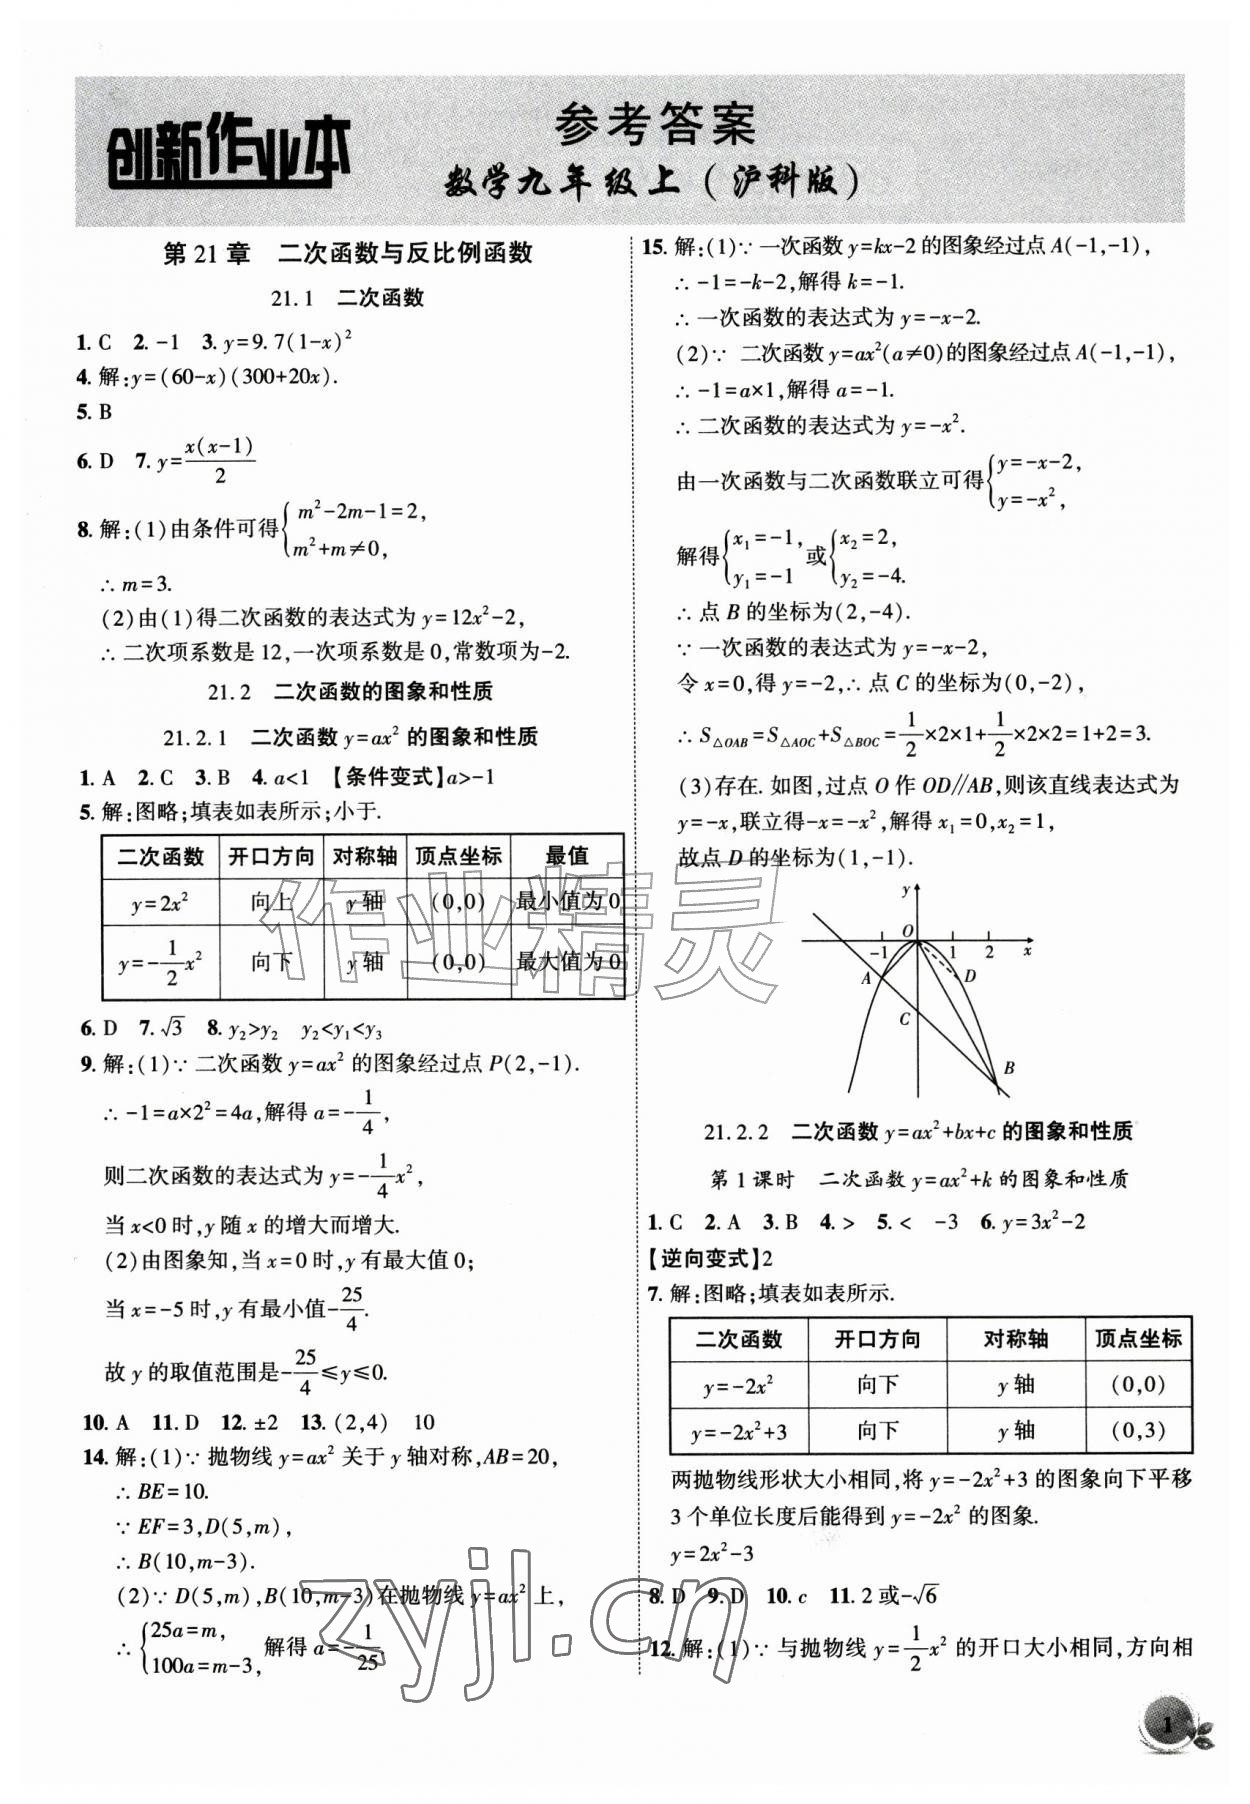 创新作业本
参考答案
数学九年级上(沪科版)
第 21 章 二次函数与反比例函数
21.1 二次函数
1. C 2. -1 3. y=9.7(1-x)²
4. 解:y=(60-x)(300+20x).
5. B
6. D 7. y=x(x-1)/2
8. 解:(1)由条件可得{m²-2m-1=2,
m²+m≠0,
∴ m=3.
(2)由(1)得二次函数的表达式为 y=12x²-2,
∴ 二次项系数是 12,一次项系数是 0,常数项为-2.
21.2 二次函数的图象和性质
21.2.1 二次函数 y=ax² 的图象和性质
1. A 2. C 3. B 4. a<1 【条件变式】a>-1
5. 解:图略;填表如表所示;小于.
二次函数 开口方向 对称轴 顶点坐标 最值
y=2x² 向上 y 轴 (0,0) 最小值为 0
y=-1/2x² 向下 y 轴 (0,0) 最大值为 0
6. D 7. √3 8. y₂>y₂ y₂<y₁<y₃
9. 解:(1)∵ 二次函数 y=ax² 的图象经过点 P(2,-1).
∴ -1=a×2²=4a,解得 a=-1/4,
则二次函数的表达式为 y=-1/4x²,
当 x<0 时,y 随 x 的增大而增大.
(2)由图象知,当 x=0 时,y 有最大值 0;
当 x=-5 时,y 有最小值-25/4.
故 y 的取值范围是-25/4≤y≤0.
10. A 11. D 12. ±2 13. (2,4) 10
14. 解:(1)∵ 抛物线 y=ax² 关于 y 轴对称,AB=20,
∴ BE=10.
∵ EF=3,D(5,m),
∴ B(10,m-3).
(2)∵ D(5,m),B(10,m-3)在抛物线 y=ax² 上,
∴ {25a=m,
100a=m-3, 解得 a=-1/25.
15. 解:(1)∵ 一次函数 y=kx-2 的图象经过点 A(-1,-1),
∴ -1=-k-2,解得 k=-1.
∴ 一次函数的表达式为 y=-x-2.
(2)∵ 二次函数 y=ax²(a≠0)的图象经过点 A(-1,-1),
∴ -1=a×1,解得 a=-1.
∴ 二次函数的表达式为 y=-x².
由一次函数与二次函数联立可得{y=-x-2,
y=-x²,
解得{x₁=-1,
y₁=-1 或{x₂=2,
y₂=-4.
∴ 点 B 的坐标为(2,-4).
∵ 一次函数的表达式为 y=-x-2,
令 x=0,得 y=-2,∴ 点 C 的坐标为(0,-2),
∴ S△OAB=S△AOC+S△BOC=1/2×2×1+1/2×2×2=1+2=3.
(3)存在. 如图,过点 O 作 OD∥AB,则该直线表达式为
y=-x,联立得-x=-x²,解得 x₁=0,x₂=1,
故点 D 的坐标为(1,-1).
y
O
-1 1 2 x
A D
C
B
21.2.2 二次函数 y=ax²+bx+c 的图象和性质
第 1 课时 二次函数 y=ax²+k 的图象和性质
1. C 2. A 3. B 4. > 5. < -3 6. y=3x²-2
【逆向变式】2
7. 解:图略;填表如表所示.
二次函数 开口方向 对称轴 顶点坐标
y=-2x² 向下 y 轴 (0,0)
y=-2x²+3 向下 y 轴 (0,3)
两抛物线形状大小相同,将 y=-2x²+3 的图象向下平移
3 个单位长度后能得到 y=-2x² 的图象.
y=2x²-3
8. D 9. D 10. c 11. 2 或-√6
12. 解:(1)∵ 与抛物线 y=1/2x² 的开口大小相同,方向相
作业精灵
zyjl.cn
1